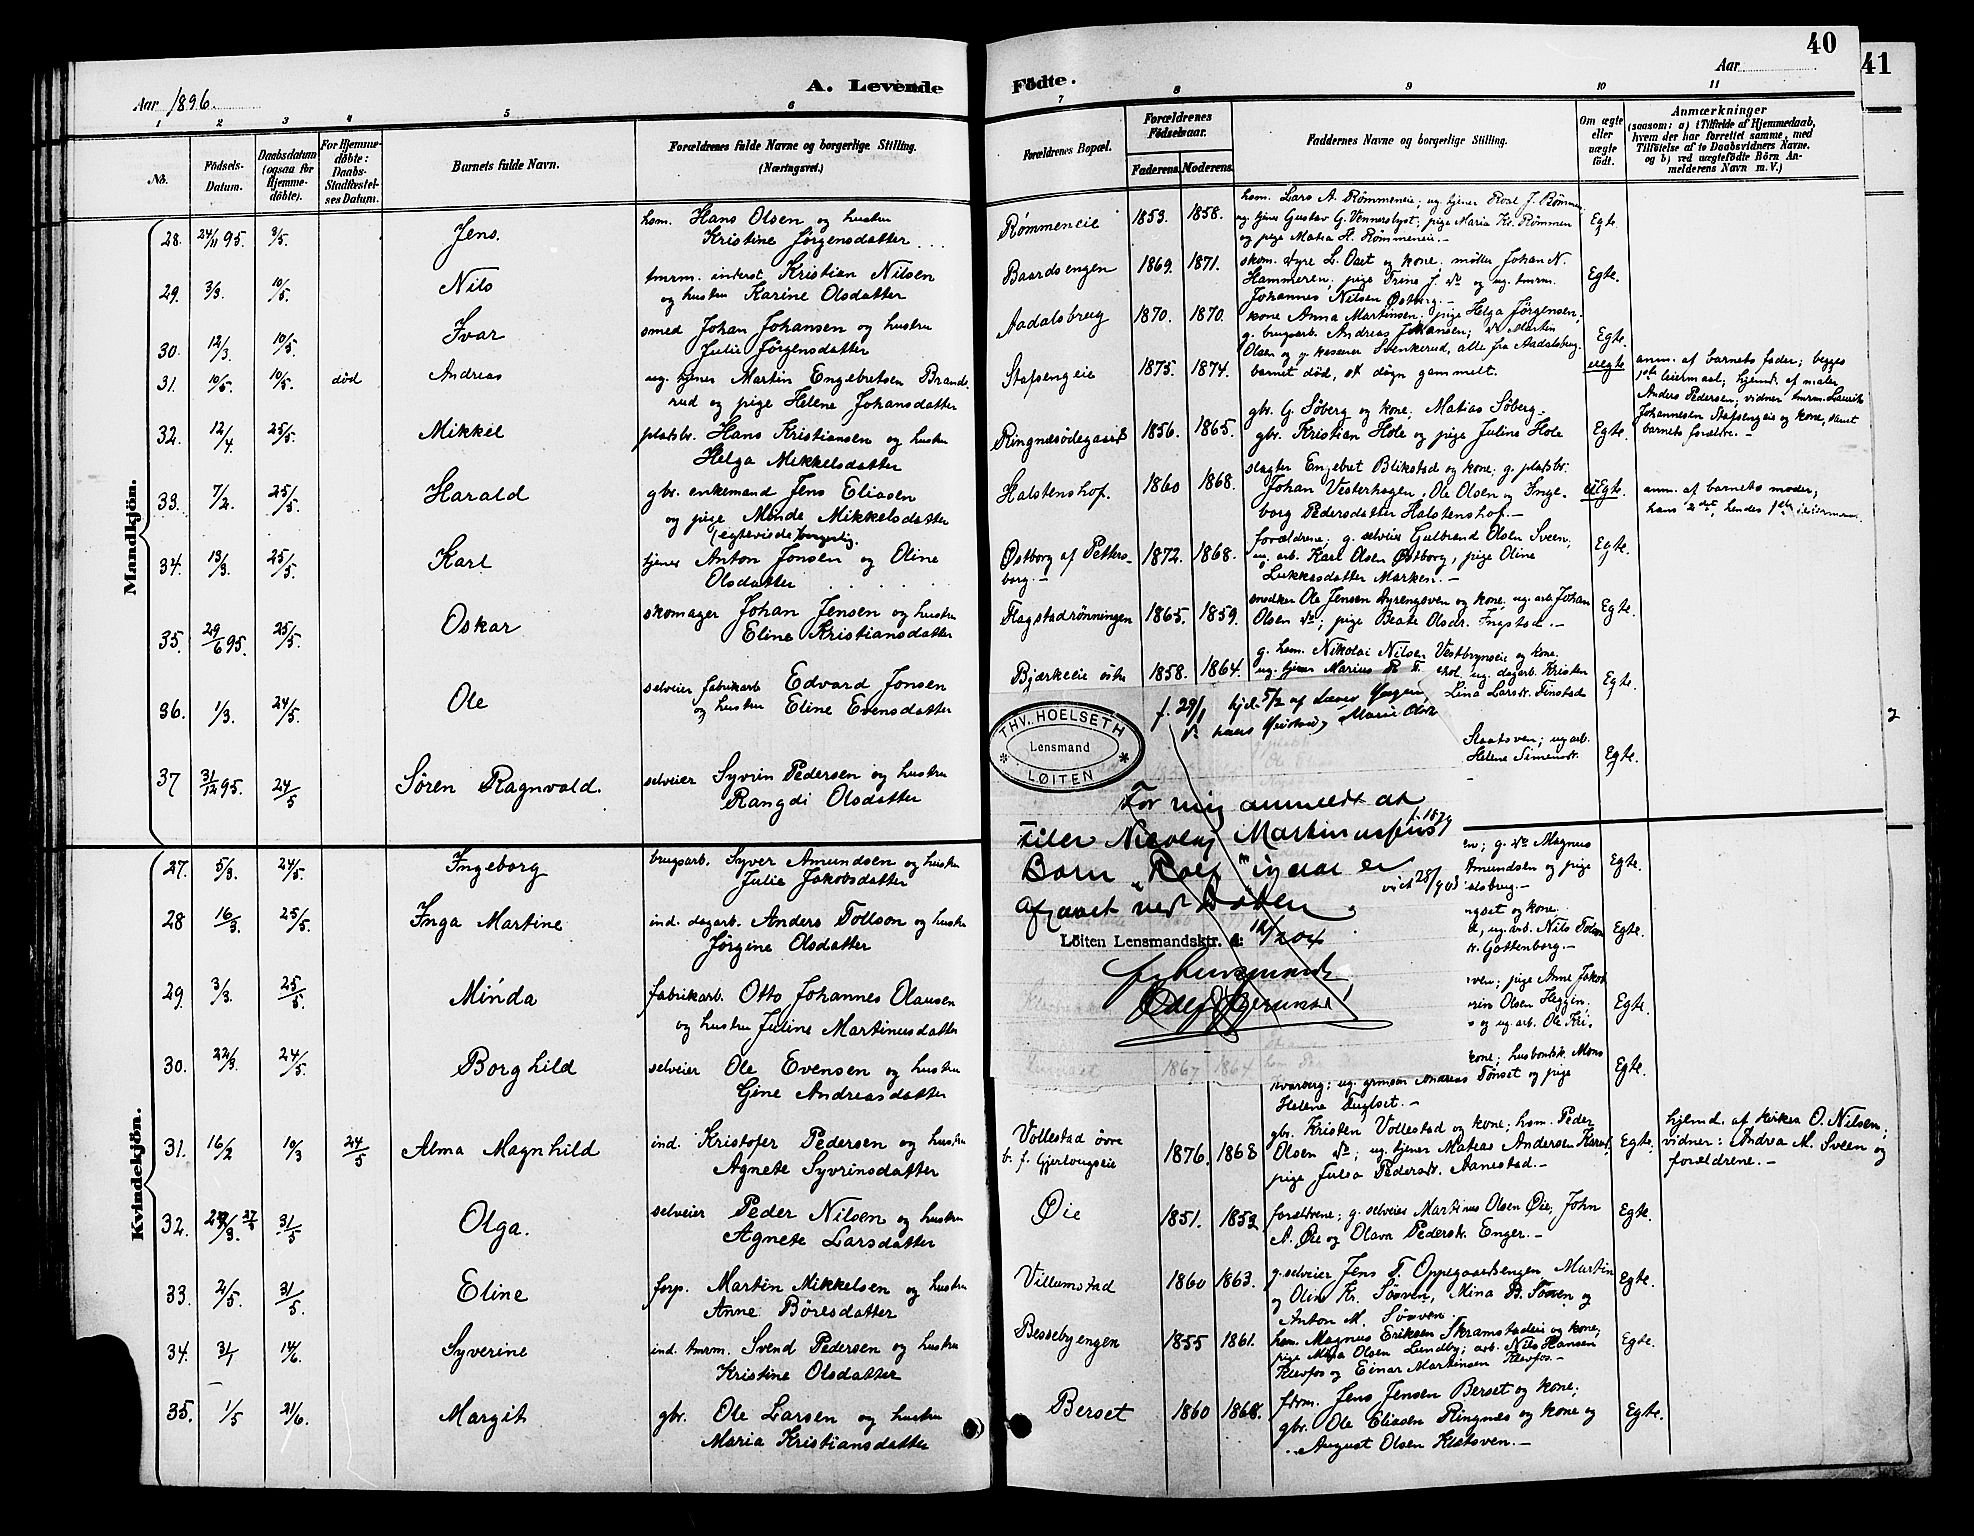 40
41
Aar 1896.
A. Levende
Födte.
Aar
1 2 3 4 5 6 7 8 9 10 11
No.
Födsels-Datum.
Daabsdatum (ogsaa for Hjemmedöbte).
For Hjemmedöbte: Daabs-Stadfæstelses Datum.
Barnets fulde Navn.
Forældrenes fulde Navne og borgerlige Stilling.
(Næringsvei.)
Forældrenes Bopæl.
Forældrenes Födselsaar.
Faderens. Moderens.
Faddernes Navne og borgerlige Stilling.
Om ægte eller uægte födt.
Anmærkninger
(saasom: a) i Tilfælde af Hjemmedaab, hvem der har forrettet samme, med Tilföielse af to Daabsvidners Navne. og b) ved uægtefödte Börn Anmelderens Navn m. V.)
Mandkjön.
28. 24/11 95. 3/5. Jens. hsm. Hans Olsen og hustru
Kristine Jørgensdatter
Rømmeneie 1853. 1858. hsm. Lars A. Rømmeneie; ug. tjener Roal J. Rømmen
ug. tjener Gustav G. Vennerslyst; pige Maria Kr. Rømmen
og pige Matea H. Rømmeneie.— Egte.
29. 3/3. 10/5. Nils tmrm. inderst Kristian Nilsen
og hustru Karine Olsdatter
Baardsengen 1869. 1871. skom. Syre L. og kone. møller Johan N.
Hammeren; pige Trine J. do og ug. tmrm.
Johannes Nilsen Østberg.— Egte.
30. 12/3. 10/5. Ivar smed Johan Johansen og hustru
Julie Jörgensdatter
Aadalsbrug 1870. 1870. kone Anna Martinsen; pige Helga Jørgensen;
g. brugsarb. Andreas Johansen; do Martin
Olsen og g. kasserer Svenkerud, alle fra Aadalsbrug. Egte.
31. 10/5. 10/5. død Andreas ug. tjener Martin Engebretsen Brands-
rud og pige Helene Johansdatter
Stafsengeie 1875. 1874. barnet død, et døgn gammelt. uegte
anm. af barnets fader; begges
1ste leiermaal; hjemd. af maler
Anders Pedersen; vidner tmrm. Laurits
Johannesen Stafsengeie og kone, samt
barnets forældre.—
32. 12/4 25/5. Mikkel pladsbr. Hans Kristiansen og hustru
Helga Mikkelsdatter
Ringnæsødegaard 1856. 1865. gbr. G. Söberg og kone; Matias Söberg.
gbr. Kristian Hole og pige Juline Hole Egte.
33. 7/2. 25/5. Harald gbr. enkemand Jens Eliasen
og pige Minda Mikkelsdatter
Halstenshof. 1860 1868. slagter Engebret Blikstad og kone; g. pladsbr.
Johan Vesterhagen, Ole Olsen og Inge-
borg Pedersdatter Halstenshof.— uEgte.
anm. af barnets moder;
hans 2det, hendes 1ste leierm.
34. 13/3. 25/5. Karl (egteviede borgerlig.
tjener Anton Jonsen og Oline
Olsdatter
Østborg af Petters-
borg.— 1872. 1868. forældrene; g. selveier Gulbrand Olsen Sveen;
ug. arb. Karl Olsen Østborg, pige Oline
Lukkasdatter Marken.— Egte.
35. 29/6 95. 25/5. Oskar skomager Johan Jensen og hustru
Eline Kristiansdatter
Flagstadrønningen 1865. 1859. snedker Ole Jensen Dyrengsven og kone, ug. arb. Johan
Olsen do; pige Beate Olsdr. Ingstad.— Egte.
36. 1/3. 24/5. Ole selveier fabrikarb Edvard Jonsen
og hustru Eline Evensdatter
Bjærkeeie östre 1858. 1864. g. hsm. Nikolai Nilsen Vestbyneie og kone.
ug. tjener Marius ekol, ug. dagarb. Kristen
Lina Larsdr. Finstad Egte.
37 31/12 95. 24/5 Søren Ragnvald. selveier Syvrin Pedersen og hustru
Rangdi Olsdatter
Staatsven; ug arb.
Helene Simensdr. Egte.
f. 29/1 hjd. 5/2 af
Marie
THV. HOELSETH
Lensmand
LØITEN
For mig anmeldt at
Nicolay Martinussens
f. 1879
Barn „Rolf" er
viet 28/9 03
Löiten Lensmandsktr. d. 12/2 04
f. Lensmanden
Kvindekjön.
27. 5/3. 24/5. Ingeborg brugsarb. Syver Amundsen og hustru
Julie Jakobsdatter
en; g. do Magnus
Amundsen og pige
alsbrug.— Egte.
28 16/3. 25/5. Inga Martine ind. dagarb. Anders Tollson og hustru
Jørgine Olsdatter
ngset og kone.
d, ug. arb. Nils
dr. Gottenborg.— Egte.
29. 3/3. 25/5. Minda fabrikarb. Otto Johannes Olausen
og hustru Juline Martinusdatter
ven; pige Anne Jakob
erin Olsen Heggin.
s og ug. arb. Ole Kri. Egte.
30. 22/3. 24/5. Borghild selveier Ole Evensen og hustru
Gine Andreasdatter
1867 1864
kone; husbondsk. Mons
Svarberg; ug. grmsøn Andreas Tønset og pige
Helene Fuglset.— Egte.
31. 16/2 10/3 24/5 Alma Magnhild ind. Kristofer Pedersen og hustru
Agnete Syvrinsdatter
Vollestad övre
b. f. Gjerlougseie 1876. 1868 gbr. Kristen Vollestad og kone; hsm. Peder
Olsen do; ug. tjener Matias Andersen
pige Julia Pedersdr. Aanestad.— Egte.
hjemd. af kirkes. O. Nilsen;
vidner: Andrea M. Sveen og
forældrene.—
32. 27/3. 31/5 Olga. selveier Peder Nilsen og hustru
Agnete Larsdatter
Øie 1851. 1852 forældrene; g. selveier Martinus Olsen Øie, John
A. Øie og Olava Pedersdr. Enger.— Egte.
33. 2/5. 31/5. Eline forp. Martin Mikkelsen og hustru
Anne Böresdatter
Villumstad 1860 1863. g. selveier Jens T. Oppegaardsengen Martin
og Oline Kr. Søoven, Mina B. og
Anton M. Søoven. Egte.
34. 3/1 14/6. Syverine ind. tmrm. Svend Pedersen og hustru
Kristine Olsdatter
Bessebyengen 1855 1861. hsm. Magnus Eriksen Skramstadeie og kone;
pige Olsen Lundby; arb. Nils Hansen
Klevfos og Einar Martinsen Klevfos.— Egte.
35. 1/5 21/6. Margit gbr. Ole Larsen og hustru
Maria Kristiansdatter
Berset 1860 1868. fdrm. Jens Jensen Berset og kone;
gbr. Ole Eliasen Ringnæs og kone og
August Olsen Klatsven.— Egte.